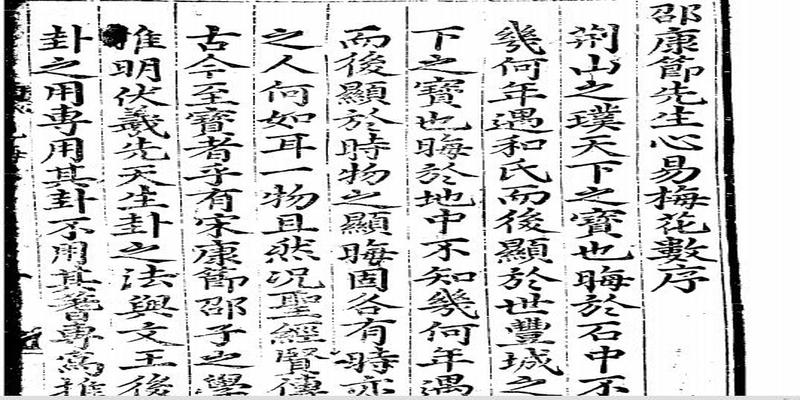 邵康節先生心易梅花數序
荆山之璞天下之寶也晦於石中不
幾何年遇和氏而後顯於世豐城之
下之寶也晦於地中不知幾何年遇
而後顯於時物之顯晦固各有時亦
之人何如耳一物且然况聖經賢傳
古今至寶者乎有宋康節邵子之學
推明伏羲先天生卦之法與文王後
卦之用専用其卦不用其蓍専為推